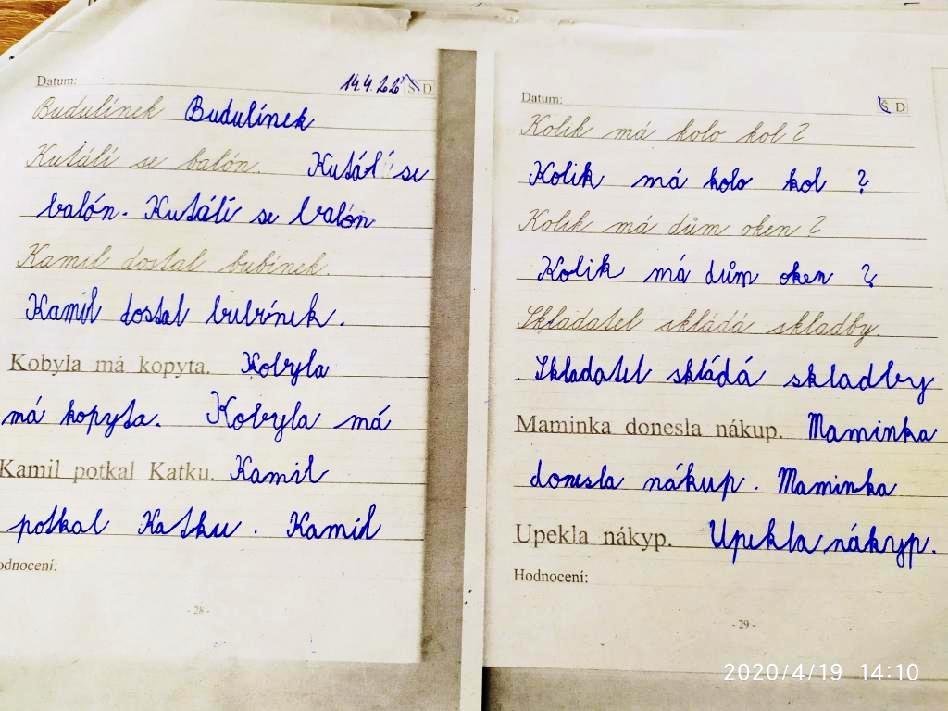 Datum: 14.4.2020 Š D
Budulínek Budulínek
Kutálí se balón. Kutálí se
balón. Kutálí se balón
Kamil dostal bubínek.
Kamil dostal bubínek.
Kobyla má kopyta. Kobyla
má kopyta. Kobyla má
Kamil potkal Katku. Kamil
potkal Katku. Kamil
odnocení:
- 28 -
Datum: Š D
Kolik má kolo kol?
Kolik má kolo kol ?
Kolik má dům oken?
Kolik má dům oken ?
Skladatel skládá skladby.
Skladatel skládá skladby
Maminka donesla nákup. Maminka
donesla nákup. Maminka
Upekla nákyp. Upekla nákyp.
Hodnocení:
- 29 -
2020/4/19 14:10